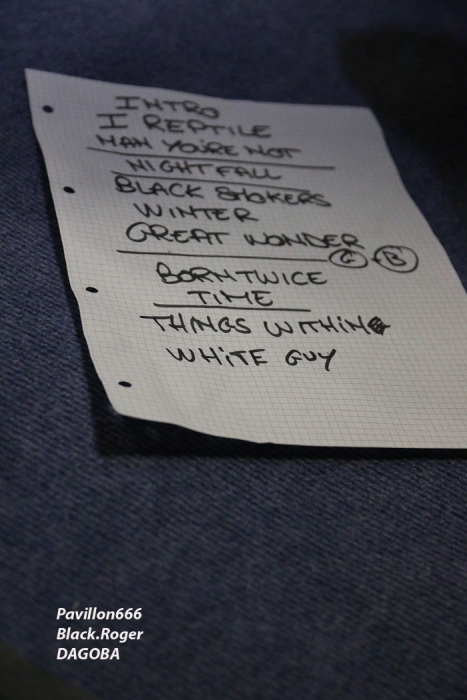 INTRO
I REPTILE
MAN YOU'RE NOT
NIGHTFALL
BLACK SMOKERS
WINTER
GREAT WONDER
C B
BORN TWICE
TIME
THINGS WITHIN
WHITE GUY
Pavillon666
Black.Roger
DAGOBA